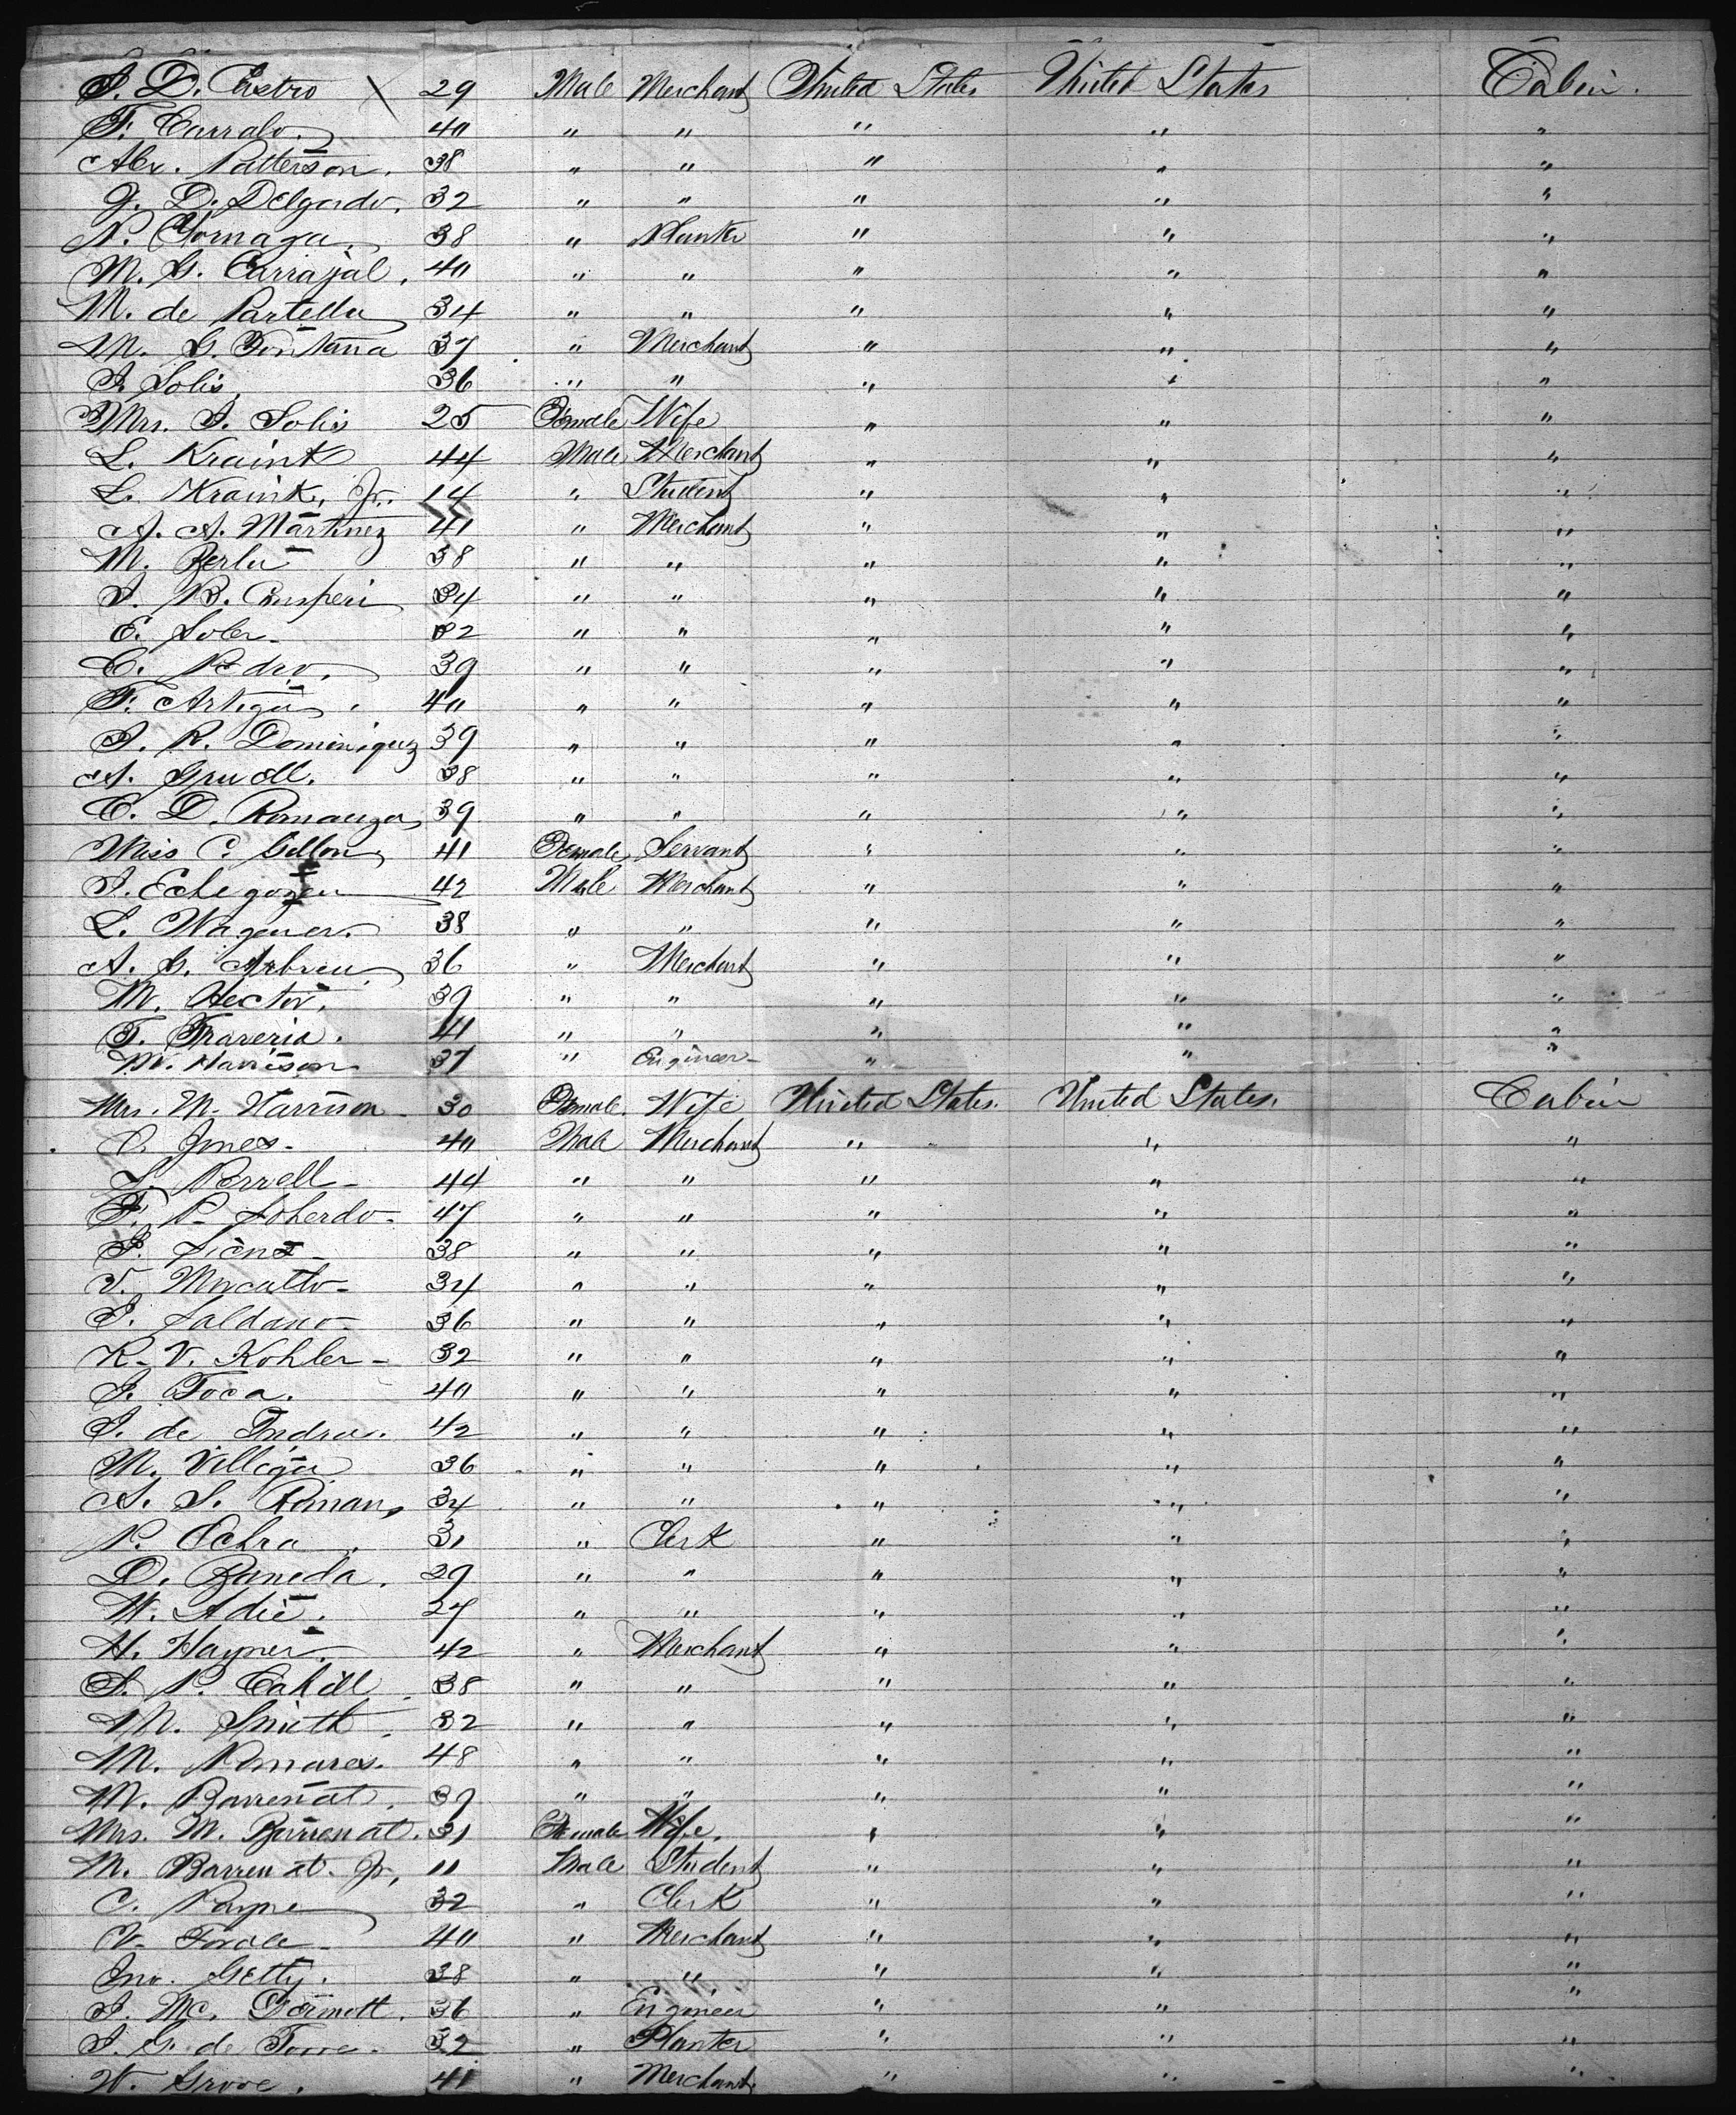 J. D. Castro 29 Male Merchant United States United States Cabin.
F. Carralo. 40 " " " " "
Alex. Patterson. 38 " " " " "
J. D. Delgado. 32 " " " " "
N. Gornaga. 38 " Planter " " "
M. G. Carrajal. 40 " " " " "
M. de Partella 34 " " " " "
M. G. Fontana 37 " Merchant " " "
J. Solis 36 " " " " "
Mrs. J. Solis 25 Female Wife " " "
L. Kraink 44 Male Merchant " " "
L. Kraink, Jr. 14 " Student " " "
A. A. Martinez 41 " Merchant " " "
M. Berlu 38 " " " " "
J. B. 34 " " " " "
E. Soler 32 " " " " "
C. Pedro, 39 " " " " "
F. Artegus. 40 " " " " "
J. R. Dominiquez 39 " " " " "
A. Gruell. 38 " " " " "
C. D. Romauga 39 " " " " "
Miss C. Gillon 41 Female Servant " " "
J. Echegozen 42 Male Merchant " " "
L. Wagener. 38 " " " " "
A. G. Arbreu 36 " Merchant " " "
M. Hector. 39 " " " " "
T. Fraveria. 41 " " " " "
M. Harrison 37 " Engineer " " "
Mrs. M. Harrison 30 Female. Wife United States. United States. Cabin
C. Jones 40 Male Merchant " " "
S. Porrell 44 " " " " "
F. P. Soherdo 47 " " " " "
P. Siens 38 " " " " "
V. Morcatto 34 " " " " "
J. Saldano 36 " " " " "
K. V. Kohler 32 " " " " "
J. Toca. 40 " " " " "
J. de Indra. 42 " " " " "
M. Villega 36 " " " " "
A. S. Roman, 34 " " " " "
P. Ochra. 31 " Clerk " " "
D. Baneda. 29 " " " " "
W. Adie. 27 " " " " "
H. Hayner. 42 " Merchant " " "
S. P. Cahill 38 " " " " "
M. Smith 32 " " " " "
M. Pomares. 48 " " " " "
M. Barrenat. 39 " " " " "
Mrs. M. Barrenat. 31 Female Wife. " " "
M. Barrenat. Jr, 11 Male Student " " "
C. Payne 32 " Clerk " " "
V. Forole 40 " Merchant " " "
Jno. Getty. 38 " " " " "
J. Mc. Dermott. 36 " Engineer " " "
J. G. de Torre. 32 " Planter " " "
W. Grove. 41 " Merchant. " " "